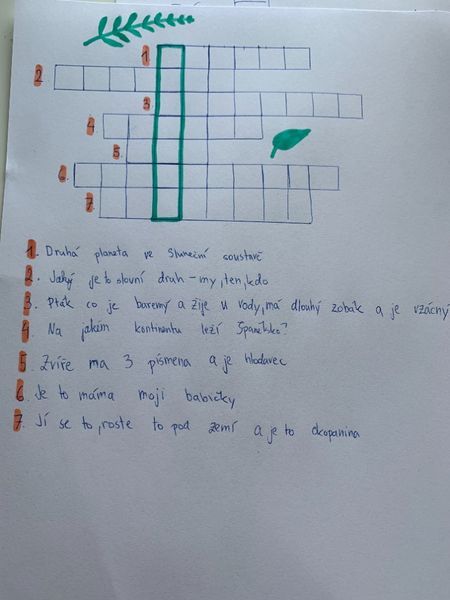 1
2
3
4
5.
6.
7.
1. Druhá planeta ve Sluneční soustavě
2. Jaký je to slovní druh - my, ten, kdo
3. Pták co je baremý a žije u vody, má dlouhý zobák a je vzácný
4. Na jakém kontinentu leží Španělsko?
5 Zvíře ma 3 písmena a je hlodavec
6. Je to máma moji babičky
7. Jí se to, roste to pod zemí a je to okopanina